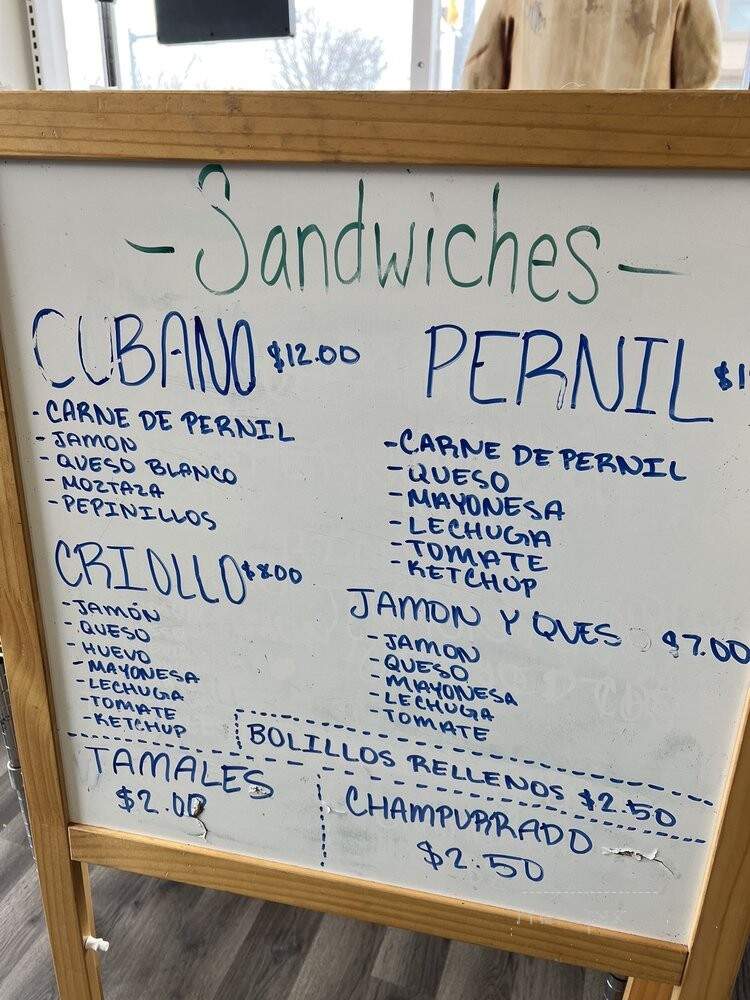 -Sandwiches-
CUBANO $12.00
- CARNE DE PERNIL
- JAMON
- QUESO BLANCO
- MOZTAZA
- PEPINILLOS
PERNIL
- CARNE DE PERNIL
- QUESO
- MAYONESA
- LECHUGA
- TOMATE
- KETCHUP
CRIOLLO $8.00
- JAMÓN
- QUESO
- HUEVO
- MAYONESA
- LECHUGA
- TOMATE
- KETCHUP
JAMON Y QUES $7.00
- JAMON
- QUESO
- MAYONESA
- LECHUGA
- TOMATE
BOLILLOS RELLENOS $2.50
TAMALES
$2.00
CHAMPURRADO
$2.50